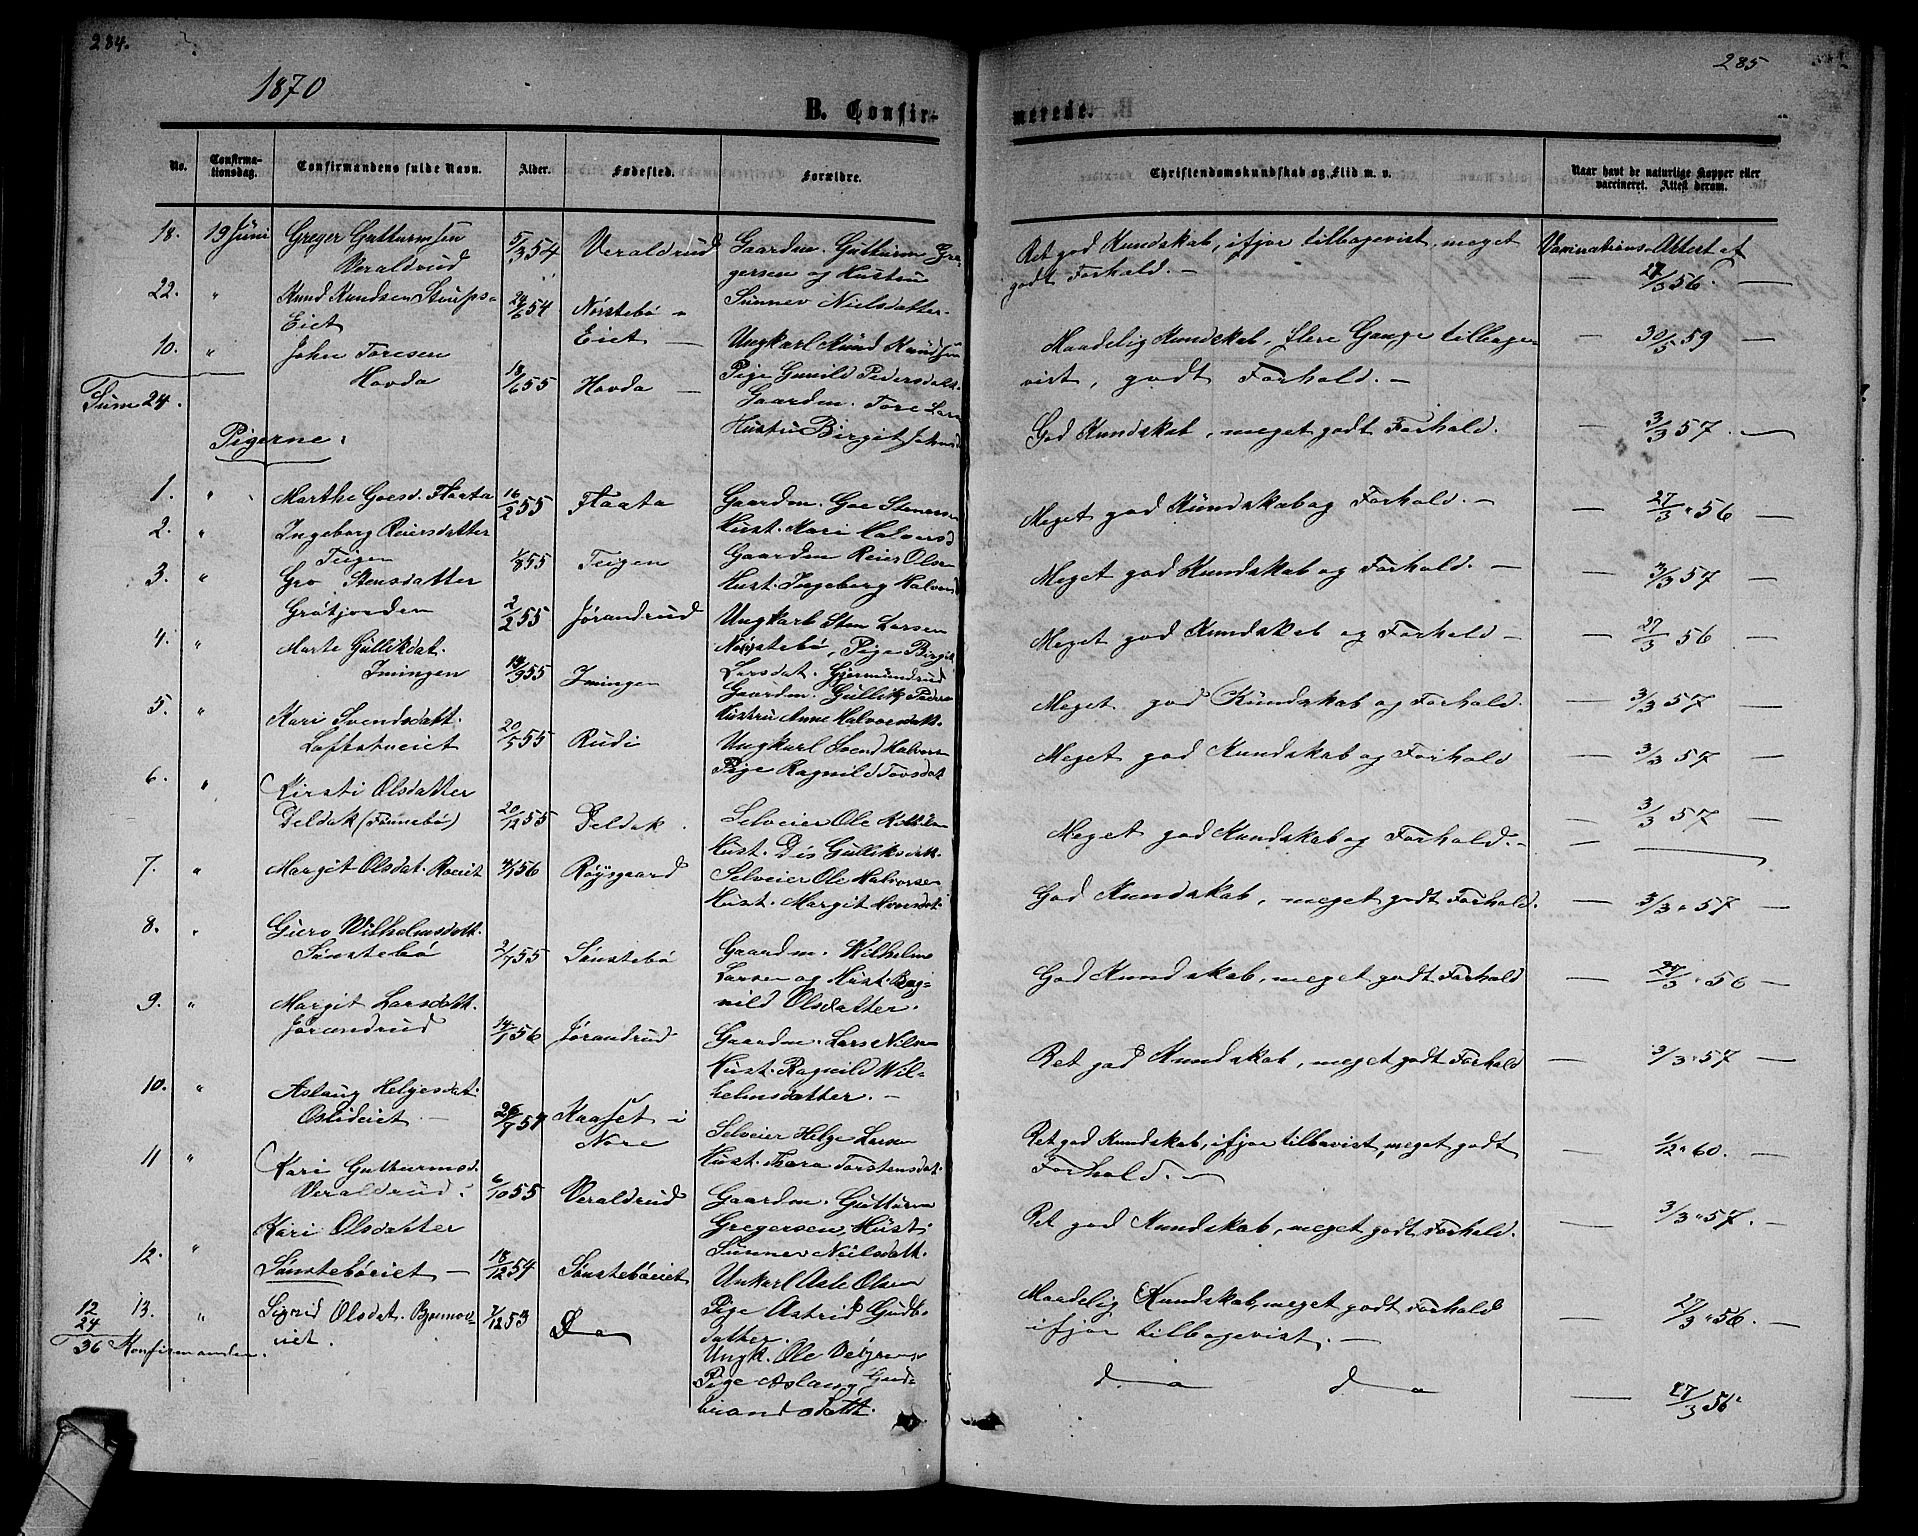 284.
1870
B. Confir-
No.
Confirma-
tionsdag.
Confirmandens fulde Navn.
Alder.
Fødested.
Forældre.
18. 19 Juni Greger Gutturmsen 5/3 54 Veraldrud Gaardm. Gutturm Gre-
Veraldrud gersen og Hustru
22. " Knud Knudsen 24/6 54 Nørstebø - Sunnev Nielsdatter
Eiet Eiet — Ungkarl Knud Knudsen
10. " John Toresen Pige Gunild Pedersdatt.
Hovda 18/1 55 Hovda — Gaardm. Tore Lars
Sum 24. Hustru Birgit Johnsd
Pigerne:
1. " Marthe Goesd. Flaata 16/2 55 Flaata Gaardm. Goe Stenersen
2. " Ingeborg Reiersdatter Hust. Mari Halvorsd
Teigen 1/8 55 Teigen Gaardm Reier Olsen
3. " Gro Stensdatter Hust. Ingeborg Halvorsd
Grøtjorden 2/2 55 Jørandrud Ungkarl Sten Larsen
4. " Marte Gullikdat. Nørstebø, Pige Birgit
Imingen 14/9 55 Imingen Larsdat. Gjermundrud
Gaardm. Gullik Peders
5. " Kari Svendsdatt. Hustru Anne Halvorsdatt.
Loftstueiet 20/5 55 Rudi Ungkarl Svend Halvors
6. " Kirsti Olsdatter Pige Ragnild Tovsdat
Deldak (Tønnebø) 20/12 55 Deldak. Selveier Ole
Hust. Dis Gulliksdatt.
7. " Margit Olsdat. Roeiet 4/1 56 Røysgaard Selveier Ole Halvorsen
Hust. Margit
8. " Guro Wilhelmsdatt.
Sønstebø 2/7 55 Sønstebø Gaardm. Wilhelm
Larsen og Hust. Rag-
9. " Margit Larsdatt. nild Olsdatter.
Jørandrud 14/1 56 Jørandrud Gaardm. Lars Nilsen
Hust. Ragnild Wil-
10. " Aslaug Helgesdat. helmsdatter. —
Oslideiet — 26/7 54 Kaaset i Selveier Helge Larsen
Nore Hust. Thora Torstensdat.
11 " Kari Gutturmsd.
Veraldrud. 6/10 55 Veraldrud Gaardm. Gutturm
Kari Olsdatter Gregersen, Hust.
12. " Sønstebøeiet — 18/12 54 Sønstebøeiet Sunnev Nielsdatt.
Unkarl Asle Olsen
13. " Sigrid Olsdat. 7/12 53 Do Pige Astrid Gudb.
eiet. datter.
12
24
36 Konfirmander. Ungk. Ole
Pige Aslaug Gud-
brandsdatt.
285
merede.
Christendomskundskab og Flid m. v.
Naar havt de naturlige Kopper eller
vaccineret. Attest derom.
Ret god Kundskab, ifjor tilbagevist, meget Vaccinations-Attest af
godt Forhold. — — 27/3 56. —
Maadelig Kundskab, flere Gange tilbage- — 30/5 59 —
vist, godt Forhold. —
God Kundskab, meget godt Forhold. — 3/3 57. —
Meget god Kundskab og Forhold. — — 27/3 56 —
Meget god Kundskab og Forhold. — — 3/3 57 —
Meget god Kundskab og Forhold — — 27/3 56 —
Meget god Kundskab og Forhold. — 3/3 57 —
Meget god Kundskab og Forhold — 3/3 57 —
Meget god Kundskab og Forhold. — — 3/3 57 —
God Kundskab, meget godt Forhold. — 3/3 57 —
God Kundskab, meget godt Forhold — 27/3 56 —
Ret god Kundskab, meget godt Forhold — 3/3 57 —
Ret god Kundskab, ifjor tilbavist, meget godt — 1/2 60. —
Forhold. —
Ret god Kundskab, meget godt Forhold. — 3/3 57. —
Maadelig Kundskab, meget godt Forhold — 27/3 56. —
ifjor tilbagevist. —
do do — 27/3 56.